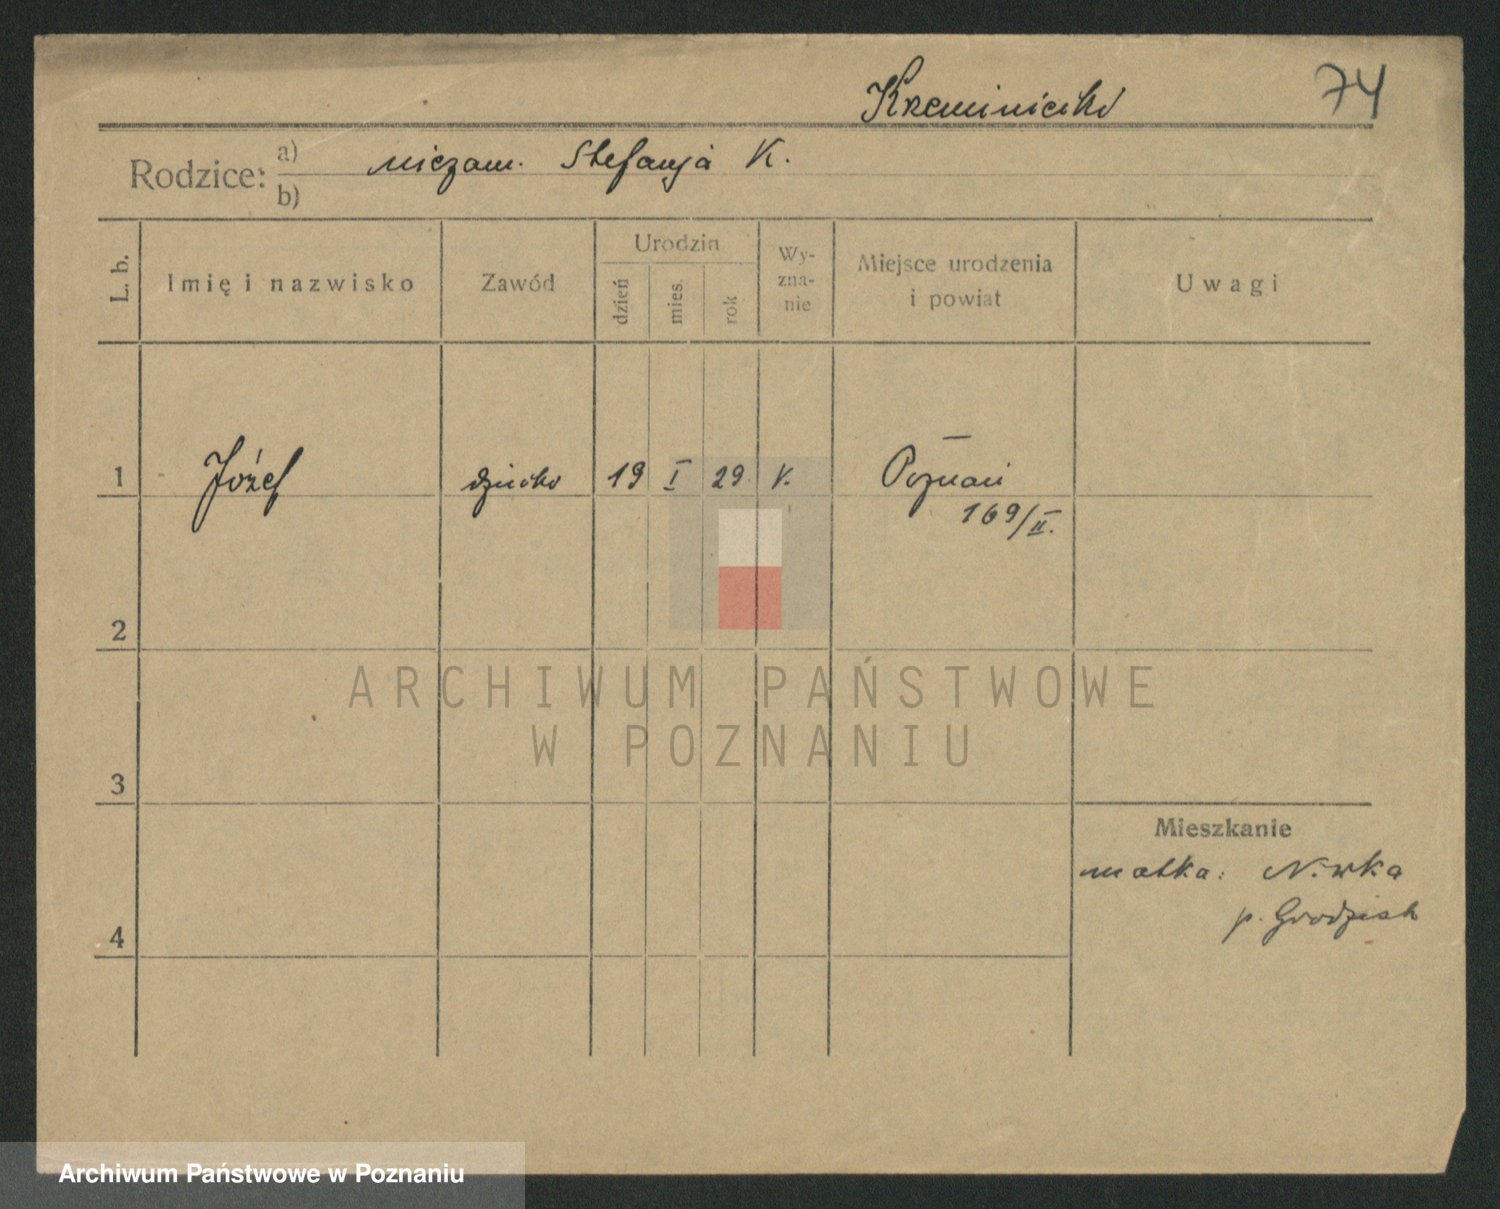 Krzeminiecki 74
Rodzice: a) niezam. Stefanja K.
b)
L. b. Imię i nazwisko Zawód Urodzin dzień mies. rok Wyznanie Miejsce urodzenia i powiat Uwagi
1 Józef dziecko 19 I 29 k. Poznań
169/II.
2
ARCHIWUM PAŃSTWOWE
W POZNANIU
3
Mieszkanie
matka: Niwka
p. Grodzisk
4
Archiwum Państwowe w Poznaniu